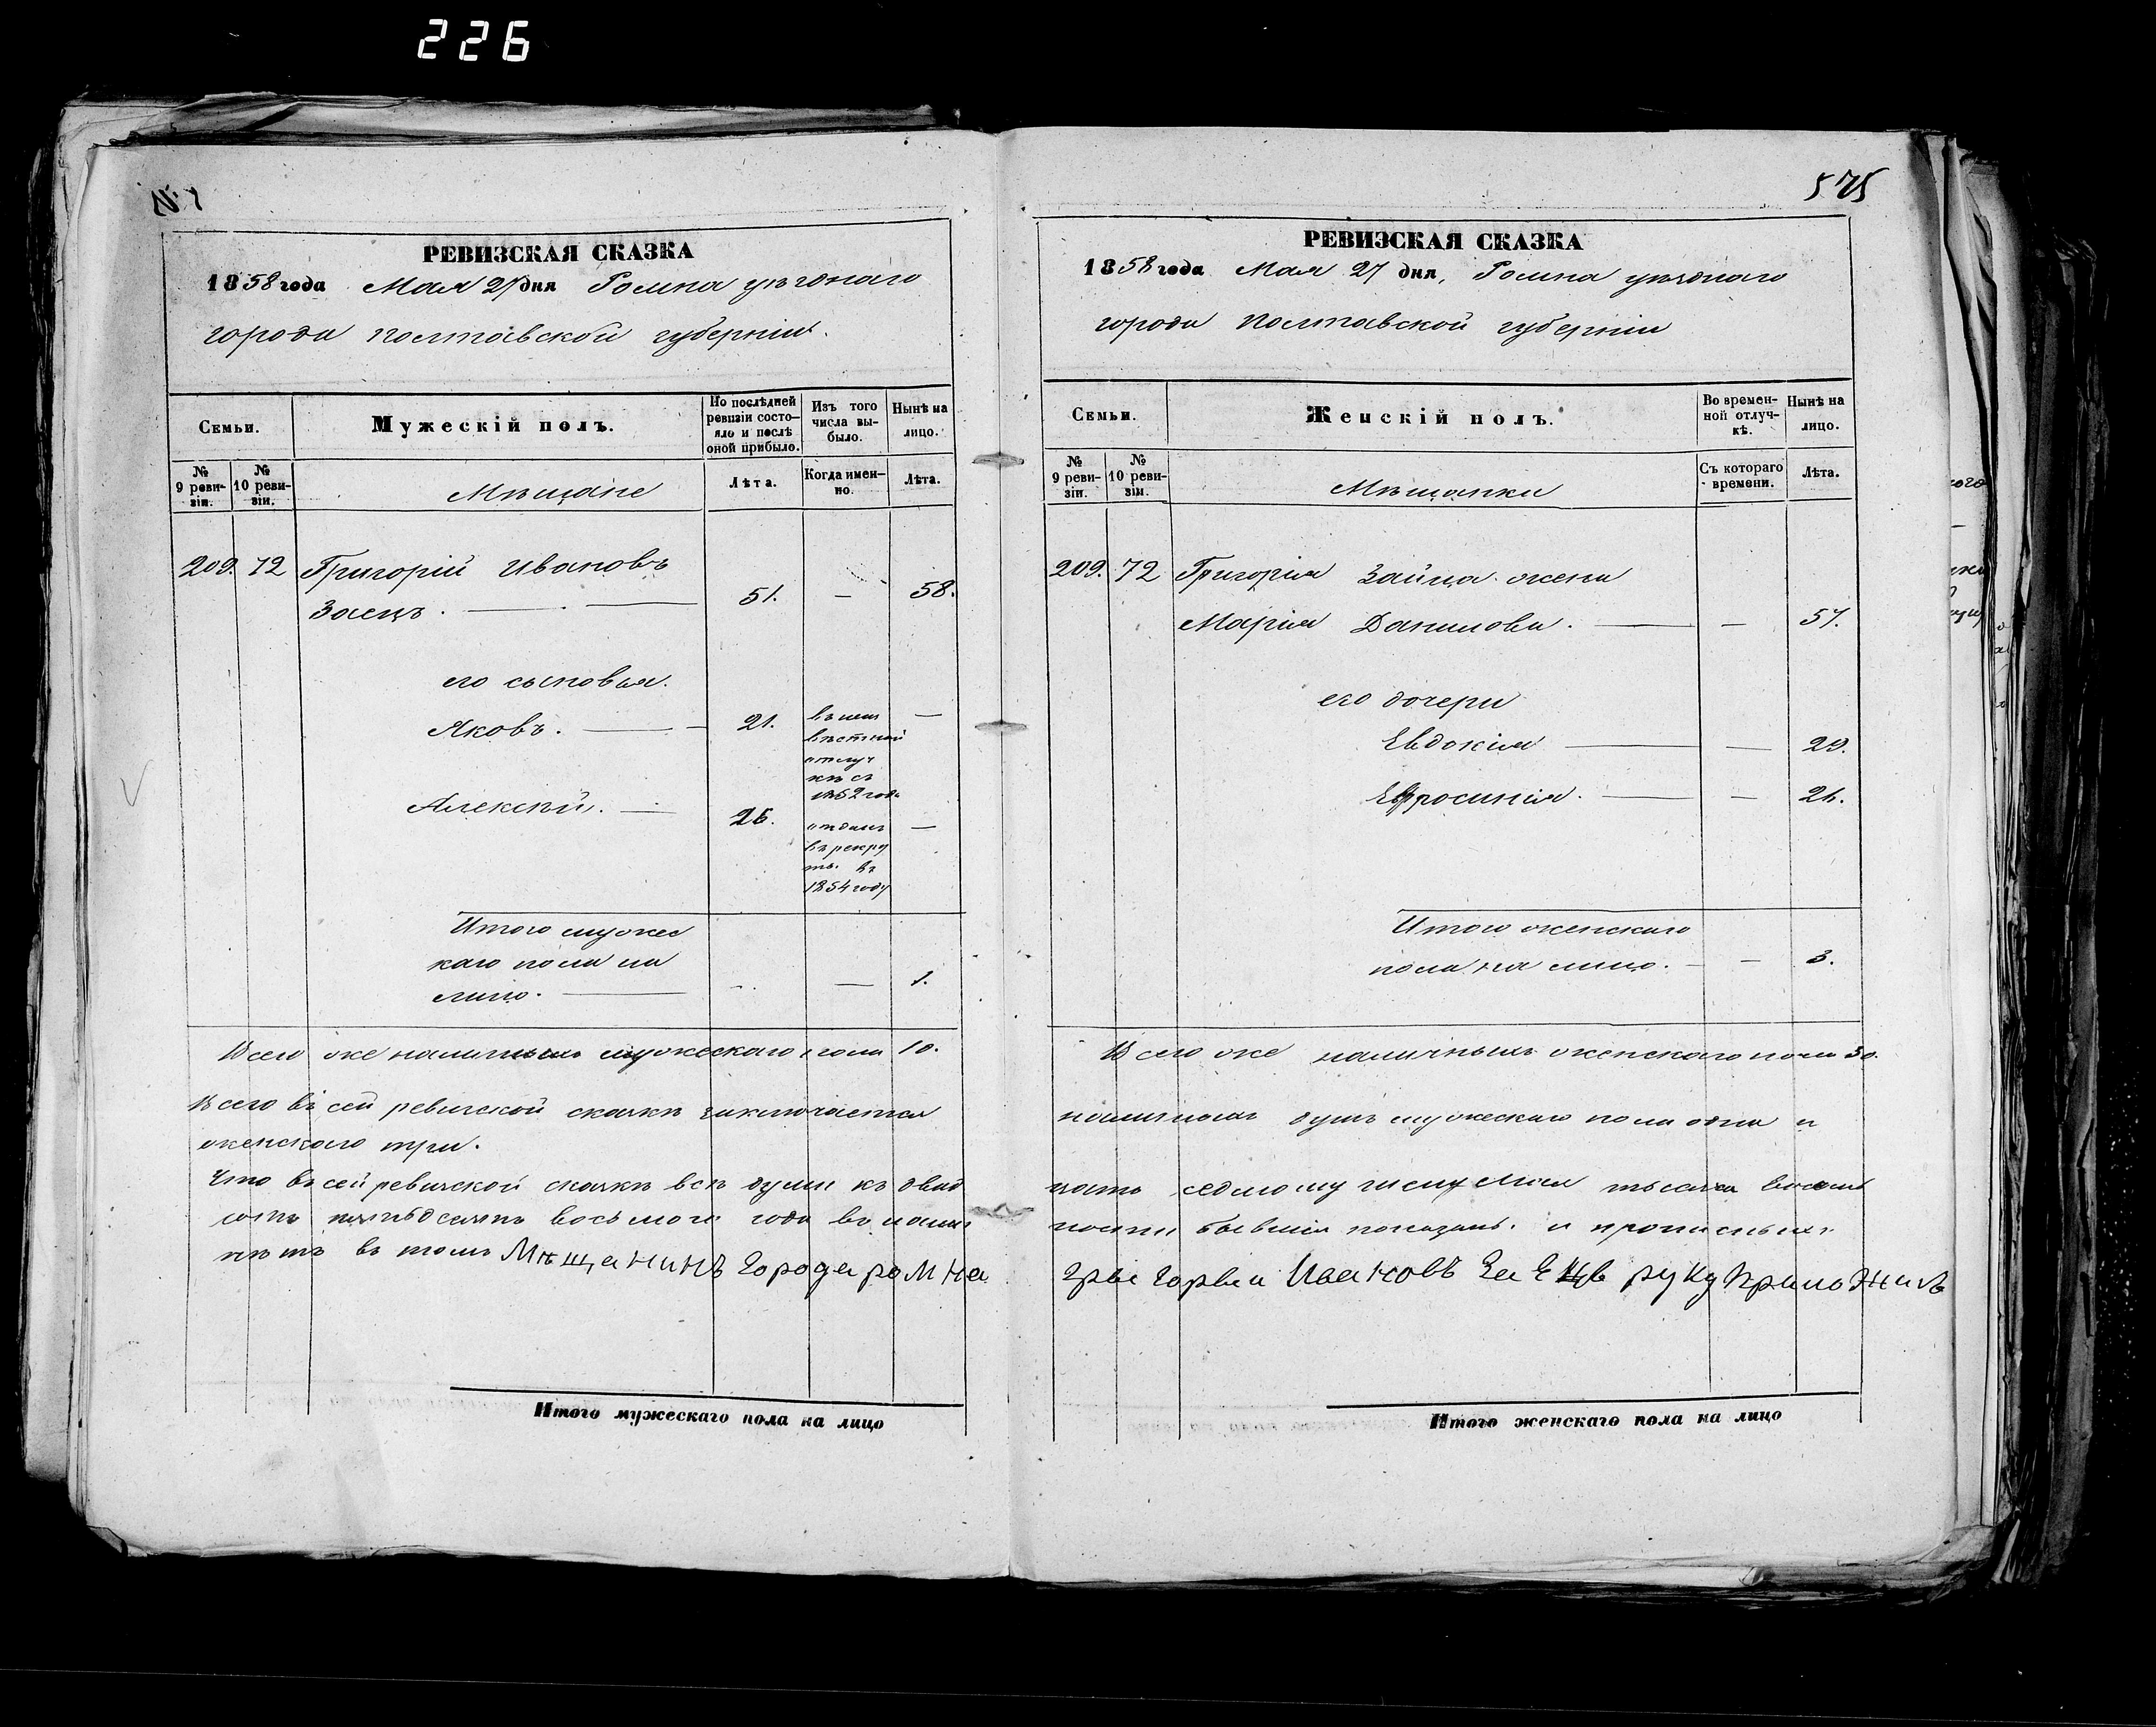 226
№ 1
РЕВИЗСКАЯ СКАЗКА
1858 года Мая 27 дня Ромна уѣзднаго
города Полтавской губерніи.
Семьи.
Мужескій полъ.
По послѣдней ревизіи состояло и послѣ оной прибыло.
Изъ того числа выбыло.
Нынѣ на лицо.
№ 9 ревизіи.
№ 10 ревизіи.
Мѣщане
Лѣта.
Когда именно.
Лѣта.
209. 72 Григорій Ивановъ
Заецъ. 51. — 58.
его сыновья.
Яковъ. 21. въ неиз
вѣстной
отлуч
кѣ съ
1852 года —
Алексѣй. 26. отданъ
въ рекру
ты. въ
1854 году —
Итого мужес
каго пола на
лицо. — 1.
Всего же наличныхъ мужескаго пола 10.
Всего въ сей ревизской сказкѣ заключается
женскаго три.
Что въ сей ревизской сказкѣ всѣ души къ двад
сотъ пятьдесятъ восьмого года въ налич
нѣтъ въ томъ Мѣщанинъ Города ромна
575
РЕВИЗСКАЯ СКАЗКА
1858 года Мая 27 дня, Ромна уѣзднаго
города Полтавской губерніи
Семьи.
Женскій полъ.
Во временной отлучкѣ.
Нынѣ на лицо.
№ 9 ревизіи.
№ 10 ревизіи.
Мѣщанки
Съ котораго времени.
Лѣта.
209. 72 Григорія Зайца жена
Марія Данилова. — 57.
его дочери
Евдокія — 29.
Ефросинія. — 26.
Итого женскаго
пола на лицо. — 3.
Всего же наличныхъ женскаго пола 30.
наличныхъ душъ мужескаго пола одна и
цать седмому числу Мая тысяча восемь
ности бывшія показаны. и прописныхъ
грыгорый Ивановъ Заецъ руку приложилъ
Итого мужескаго пола на лицо
Итого женскаго пола на лицо